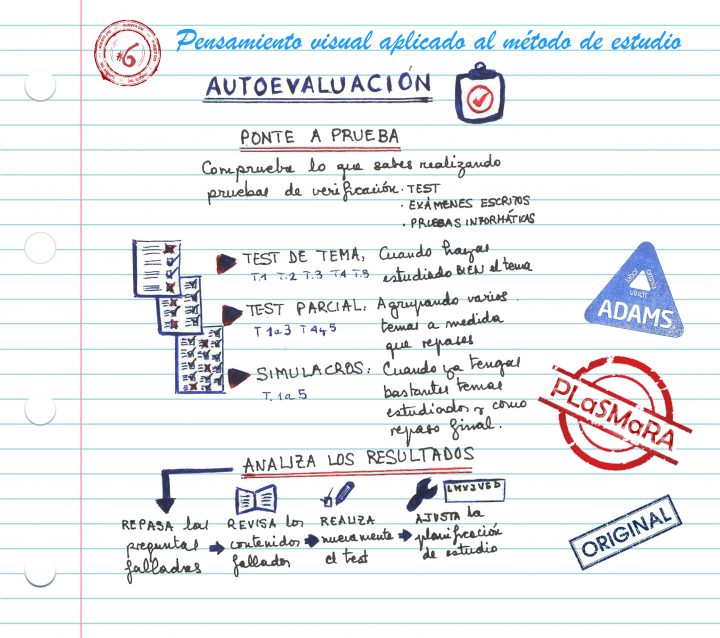 #6
Pensamiento visual aplicado al método de estudio
AUTOEVALUACIÓN
PONTE A PRUEBA
Comprueba lo que sabes realizando
pruebas de verificación. · TEST
· EXÁMENES ESCRITOS
· PRUEBAS INFORMÁTICAS
TEST DE TEMA: Cuando hayas
T.1 T.2 T.3 T.4 T.5 estudiado BIEN el tema
TEST PARCIAL: Agrupando varios
T. 1a3 T 4y5 temas a medida
que repases
SIMULACROS: Cuando ya tengas
T. 1a5 bastantes temas
estudiados y como
repaso final.
ADAMS
labor omnia vincit
PLaSMaRA
ANALIZA LOS RESULTADOS
LMXJVSD
REPASA las
preguntas
falladas
REVISA los
contenidos
fallados
REALIZA
nuevamente
el test
AJUSTA la
planificación
de estudio
ORIGINAL